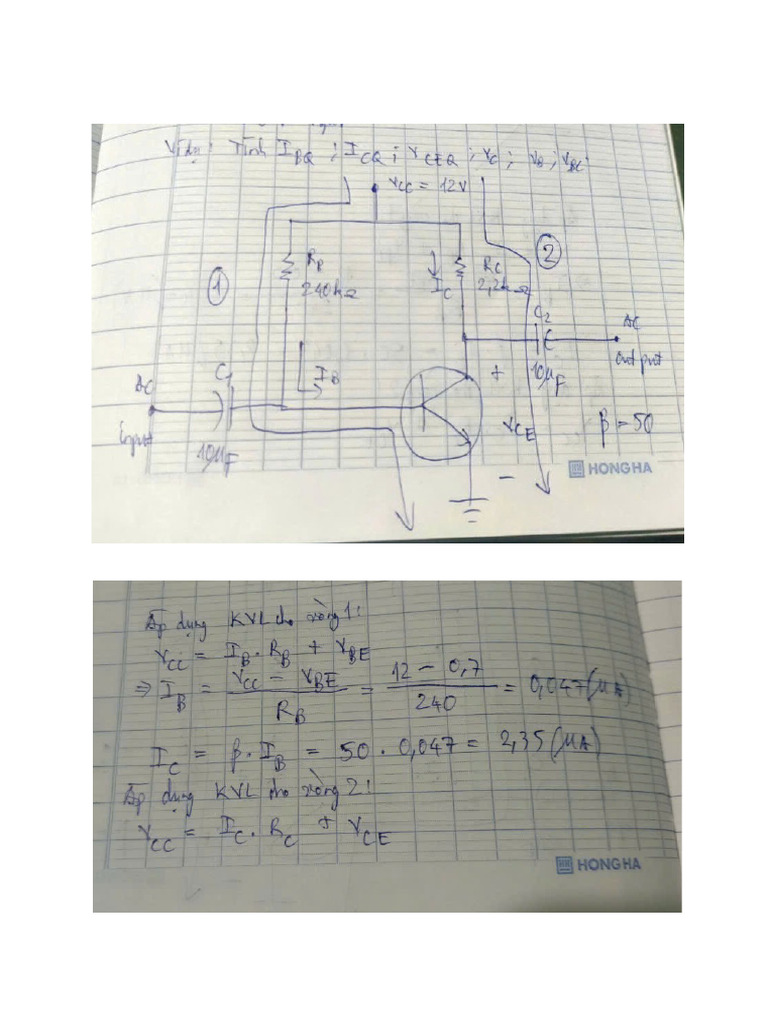 Ví dụ: Tính I_BQ ; I_CQ ; V_CEQ ; V_C ; V_B ; V_BC
V_CC = 12V
R_B
240kΩ
I_C
R_C
2,2kΩ
①
②
C_2
AC
output
10μF
AC
input
C_1
10μF
I_B
+
V_CE
-
β = 50
HONG HA
Áp dụng KVL cho vòng 1:
V_CC = I_B . R_B + V_BE
⇒ I_B = (V_CC - V_BE) / R_B = (12 - 0,7) / 240 = 0,047 (μA)
I_C = β . I_B = 50 . 0,047 = 2,35 (μA)
Áp dụng KVL cho vòng 2:
V_CC = I_C . R_C + V_CE
HONG HA